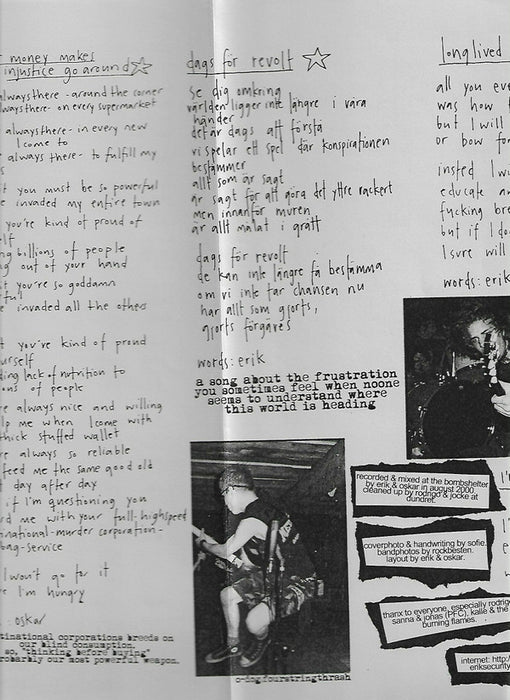 money makes
injustice go around
always there - around the corner
always there - on every supermarket
always there - in every new
I come to
always there - to fulfill my
t you must be so powerful
e invaded my entire town
you're kind of proud of
elf
ng billions of people
g out of your hand
t you're so goddamn
ful
e invaded all the others
t you're kind of proud
urself
ding lack of nutrition to
ons of people
re always nice and willing
lp me when I come with
thick stuffed wallet
re always so reliable
feed me the same good old
day after day
if I'm questioning you
rd me with your full-highspeed
national-murder corporation-
bag-service
I won't go for it
e I'm hungry
: oskar
tinational corporations breeds on
our blind consumption.
so, "thinking before buying"
probably our most powerful weapon.
dags för revolt
se dig omkring
världen ligger inte längre i våra
händer
det är dags att förstå
vi spelar ett spel där konspirationen
bestämmer
allt som är sagt
är sagt för att göra det yttre vackert
men innanför muren
är allt målat i grått
dags för revolt
de kan inte längre få bestämma
om vi inte tar chansen nu
har allt som gjorts,
gjorts förgäves
words: erik
a song about the frustration
you sometimes feel when noone
seems to understand where
this world is heading
o-dogfourstringthrash
long lived
all you eve
was how t
but I will
or bow for
insted I wi
educate an
fucking bre
but if I do
I sure will
words: erik
recorded & mixed at the bombshelter
by erik & oskar in august 2000.
cleaned up by rodrigo & jocke at
dundret.
coverphoto & handwriting by sofie.
bandphotos by rockbesten.
layout by erik & oskar.
thanx to everyone, especially rodrigo
sanna & jonas (PFC), kalle & the
burning flames.
internet: http:/
eriksecurity